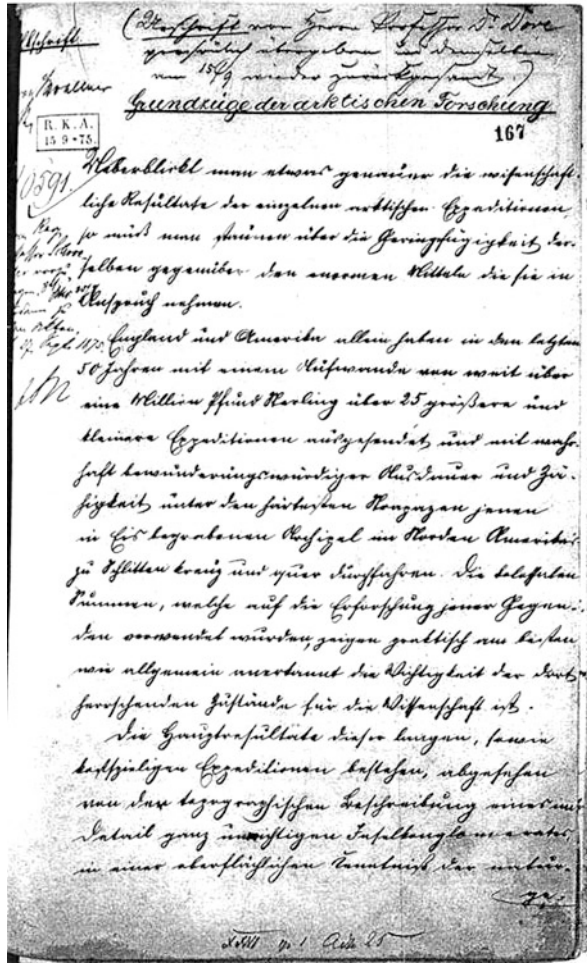 (Urschrift von Herrn Professor Dr. Dove
persönlich übergeben und demselben
am 15/9 wieder zurückgesandt.)
Grundzüge der arktischen Forschung
R. K. A.
15 9 • 75.
167
10591.
Ueberblickt man etwas genauer die wissenschaft-
liche Resultate der einzelnen arktischen Expeditionen,
so muß man staunen über die Geringfügigkeit der-
selben gegenüber den enormen Mitteln die sie in
Anspruch nehmen.
England und Amerika allein haben in den letzten
50 Jahren mit einem Aufwande von weit über
eine Million Pfund Sterling über 25 größere und
kleinere Expeditionen ausgesendet und mit wahr-
haft bewunderungswürdiger Ausdauer und Zä-
higkeit unter den härtesten Strapazen jenen
in Eis begrabenen Archipel im Norden Amerikas
zu Schlitten kreuz und quer durchfahren. Die
Summen, welche auf die Erforschung jener Gegen-
den verwendet wurden, zeigen praktisch am besten
wie allgemein anerkannt die Wichtigkeit der dort
herrschenden Zustände für die Wissenschaft ist.
Die Hauptresultate dieser langen, sowie
kostspieligen Expeditionen bestehen, abgesehen
von der topographischen Beschreibung eines im
Detail ganz unwichtigen Inselkonglomerates,
in einer oberflächlichen Kenntniß der natur-